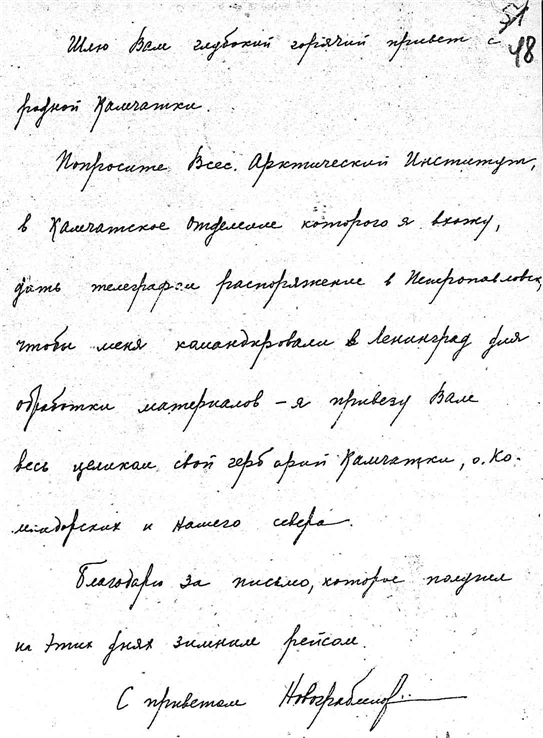 Шлю Вам глубокий горячий привет с
48
родной Камчатки.
Попросите Всес. Арктический Институт,
в Камчатское отделение которого я вхожу,
дать телеграфом распоряжение в Петропавловск,
чтобы меня командировали в Ленинград для
обработки материалов – я привезу Вам
весь целиком свой гербарий Камчатки, о. Ко-
мандорских и нашего севера.
Благодарю за письмо, которое получил
на этих днях зимним рейсом.
С приветом Новограбленов